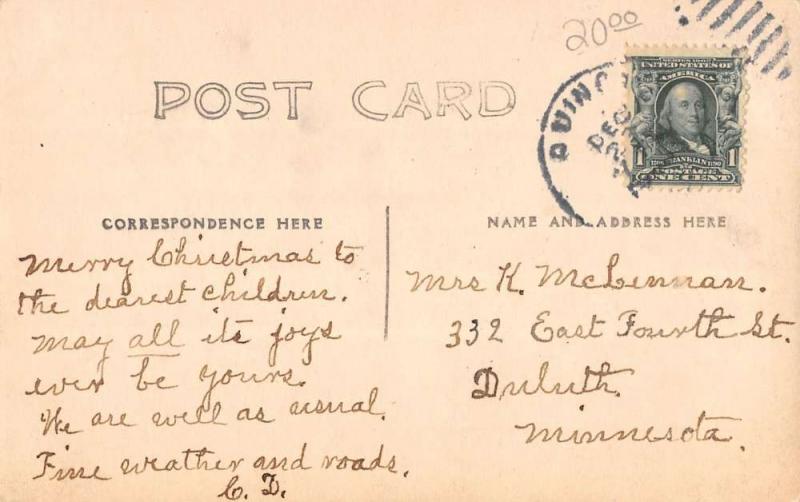 20 00
POST CARD
QUINC
DEC
SERIES 1902
UNITED STATES OF
AMERICA
1 FRANKLIN 1
POSTAGE
ONE CENT
CORRESPONDENCE HERE
Merry Christmas to
the dearest children.
May all its joys
ever be yours.
We are well as usual.
Fine weather and roads.
C. D.
NAME AND ADDRESS HERE
Mrs K. McLennan.
332 East Fourth St.
Duluth.
Minnesota.